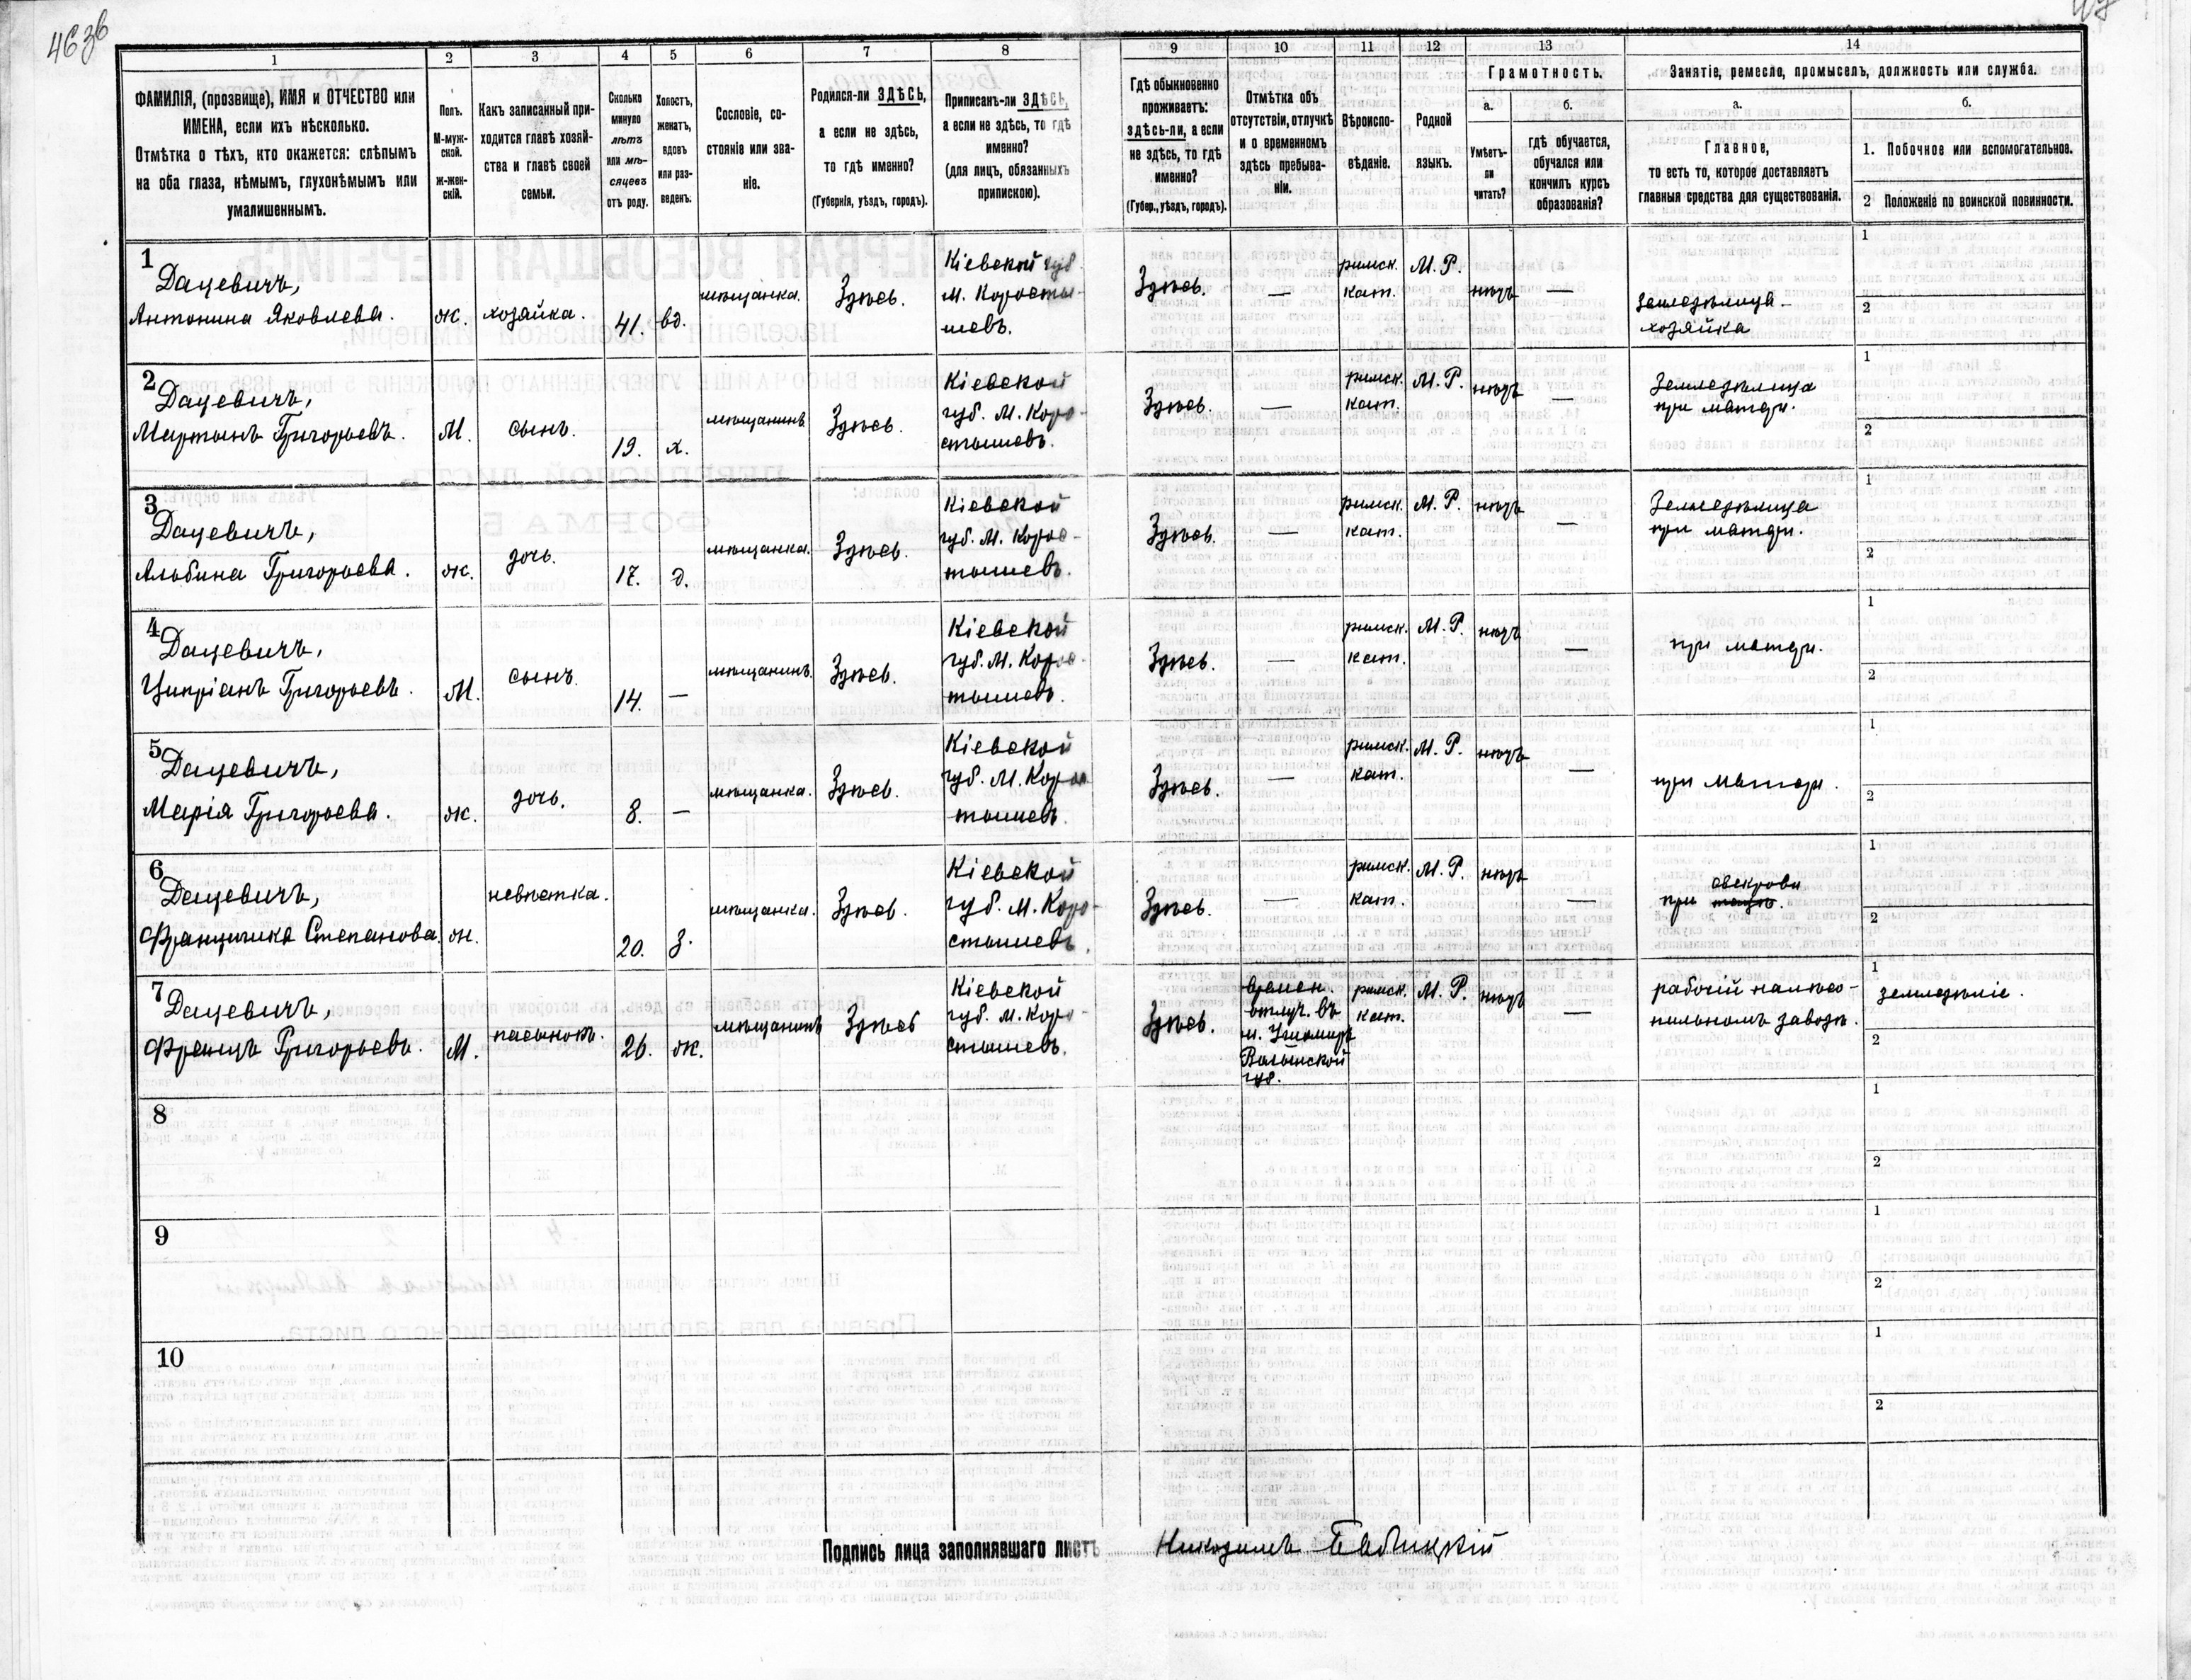 463б
1
2
3
4
5
6
7
8
9
10
11
12
13
14
ФАМИЛІЯ, (прозвище), ИМЯ и ОТЧЕСТВО или
ИМЕНА, если ихъ нѣсколько.
Отмѣтка о тѣхъ, кто окажется: слѣпымъ
на оба глаза, нѣмымъ, глухонѣмымъ или
умалишеннымъ.
Полъ.
М-муж-
ской.
ж-жен-
скій.
Какъ записанный при-
ходится главѣ хозяй-
ства и главѣ своей
семьи.
Сколько
минуло
лѣтъ
или мѣ-
сяцевъ
отъ роду.
Холостъ,
женатъ,
вдовъ
или раз-
веденъ.
Сословіе, со-
стояніе или зва-
ніе.
Родился-ли ЗДѢСЬ,
а если не здѣсь,
то гдѣ именно?
(Губернія, уѣздъ, городъ).
Приписанъ-ли ЗДѢСЬ,
а если не здѣсь, то гдѣ
именно?
(для лицъ, обязанныхъ
припискою).
Гдѣ обыкновенно
проживаетъ:
здѣсь-ли, а если
не здѣсь, то гдѣ
именно?
(Губер., уѣздъ, городъ).
Отмѣтка объ
отсутствіи, отлучкѣ
и о временномъ
здѣсь пребыва-
ніи.
Вѣроиспо-
вѣданіе.
Родной
языкъ.
Грамотность.
а.
Умѣетъ-
ли
читать?
б.
гдѣ обучается,
обучался или
кончилъ курсъ
образованія?
Занятіе, ремесло, промыселъ, должность или служба.
а.
Главное,
то есть то, которое доставляетъ
главныя средства для существованія.
б.
1. Побочное или вспомогательное.
2 Положеніе по воинской повинности.
1
Дацевичъ,
Антонина Яковлева.
ж.
хозяйка.
41.
вд.
мѣщанка.
Здѣсь.
Кіевской губ.
м. Коросты-
шевъ.
Здѣсь.
—
римск.
кат.
М. Р.
нѣтъ
—
Земледѣлица-
хозяйка
1
2
2
Дацевичъ,
Мартынъ Григорьевъ.
М.
сынъ.
19.
х.
мѣщанинъ
Здѣсь.
Кіевской
губ. М. Коро-
стышевъ.
Здѣсь.
—
римск.
кат.
М. Р.
нѣтъ
—
Земледѣлица
при матери.
1
2
3
Дацевичъ,
Альбина Григорьева.
ж.
дочь.
17.
д.
мѣщанка.
Здѣсь.
Кіевской
губ. М. Корос-
тышевъ.
Здѣсь.
—
римск.
кат.
М. Р.
нѣтъ
—
Земледѣлица
при матери.
1
2
4
Дацевичъ,
Ципріанъ Григорьевъ.
М.
сынъ.
14.
—
мѣщанинъ.
Здѣсь.
Кіевской
губ. М. Корос-
тышевъ.
Здѣсь.
—
римск.
кат.
М. Р.
нѣтъ
—
при матери.
1
2
5
Дацевичъ,
Марія Григорьева.
ж.
дочь.
8.
—
мѣщанка.
Здѣсь.
Кіевской
губ. М. Корос
тышевъ.
Здѣсь.
—
римск.
кат.
М. Р.
нѣтъ
—
при матери.
1
2
6
Дацевичъ,
Францишка Степанова.
ж.
невѣстка.
20.
з.
мѣщанка.
Здѣсь.
Кіевской
губ. М. Коро-
стышевъ.
Здѣсь.
—
римск.
кат.
М. Р.
нѣтъ
—
свекрови
при
1
2
7
Дацевичъ,
Францъ Григорьевъ.
М.
пасынокъ.
26.
ж.
мѣщанинъ
Здѣсь
Кіевской
губ. м. Коро-
стышевъ.
Здѣсь.
времен.
отлуч. въ
м. Ушомиръ
Волынской
губ.
римск.
кат.
М. Р.
нѣтъ
—
рабочій на лѣсо-
пильномъ заводѣ.
1
земледѣліе.
2
8
1
2
9
1
2
10
1
2
Подпись лица заполнявшаго листъ
Никодимъ Бабицкій